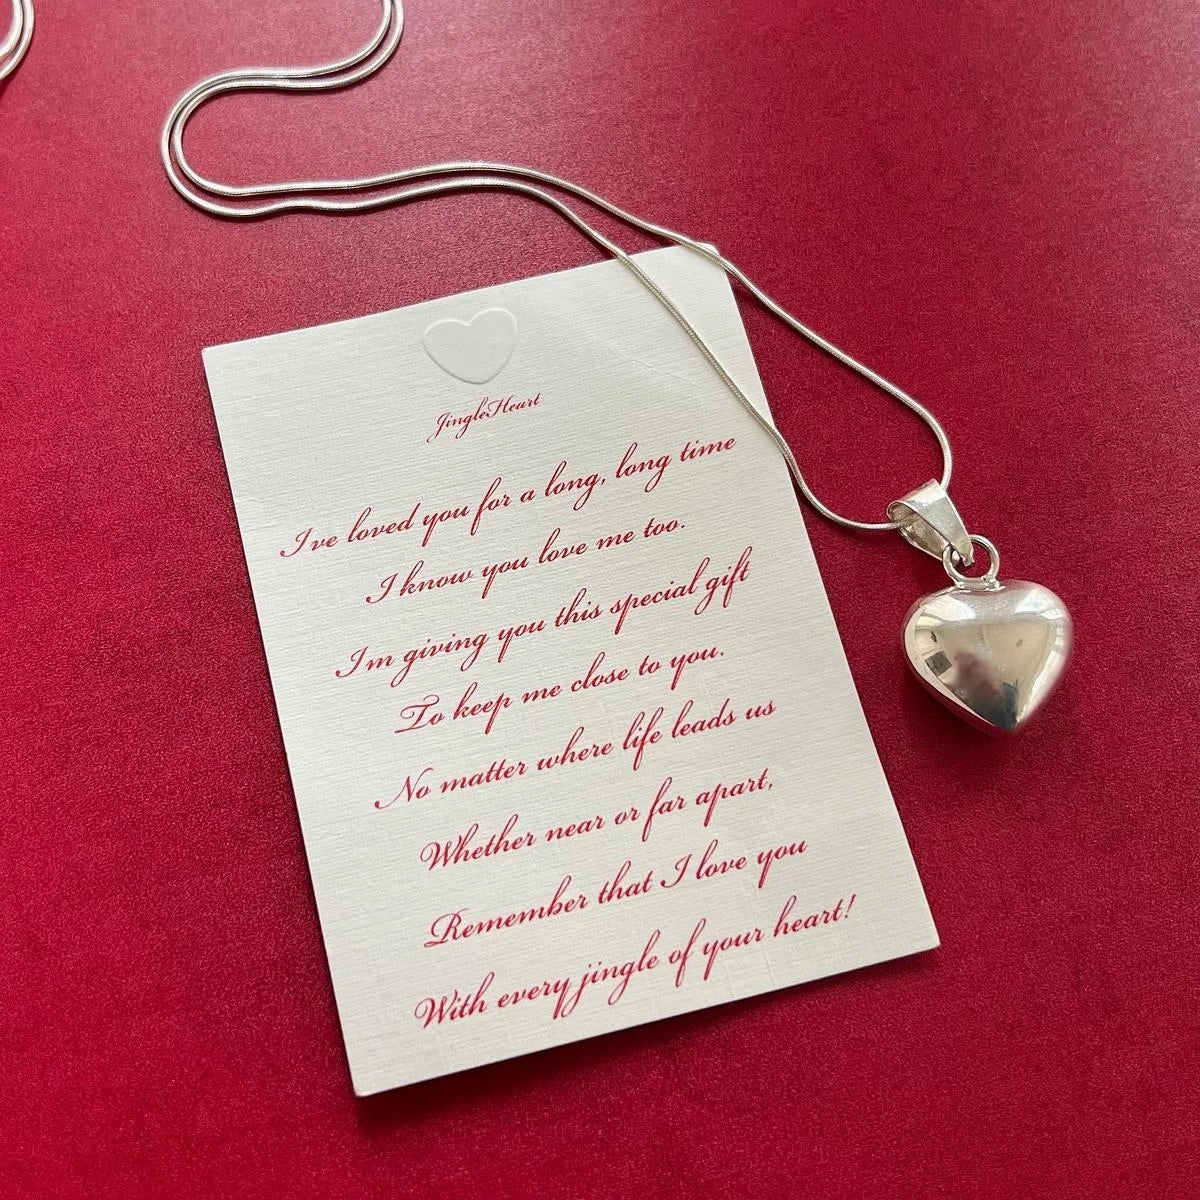 JingleHeart
I've loved you for a long, long time
I know you love me too.
I'm giving you this special gift
To keep me close to you.
No matter where life leads us
Whether near or far apart,
Remember that I love you
With every jingle of your heart!